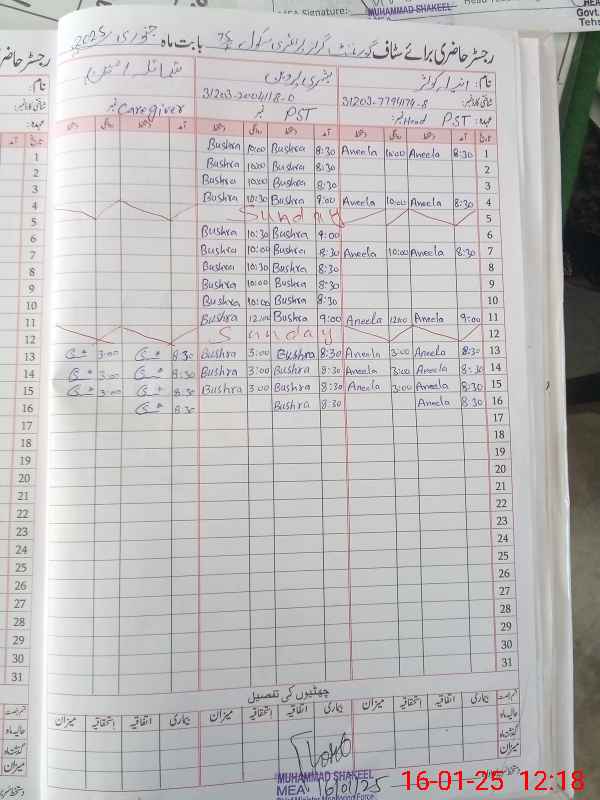 MEA Signature:
MUHAMMAD SHAKEEL
Govt.
رجسٹر حاضری برائے سٹاف گورنمنٹ گرلز پرائمری سکول بابت ماہ جنوری 2025
نام:
بشریٰ پروین
31203-2004118-0
شناختی کارڈ نمبر: 31203-7794174-8
عہدہ: PST Head نمبر:
PST نمبر
Caregiver نمبر
تاریخ آمد دستخط روانگی دستخط آمد دستخط روانگی دستخط آمد دستخط روانگی دستخط
1 8:30 Aneela 10:00 Aneela 8:30 Bushra 10:00 Bushra
2 8:30 Bushra 10:00 Bushra
3 8:30 Bushra 10:00 Bushra
4 8:30 Aneela 10:00 Aneela 9:00 Bushra 10:30 Bushra
5 Sunday
6 9:00 Bushra 10:30 Bushra
7 8:30 Aneela 10:00 Aneela 8:30 Bushra 10:00 Bushra
8 8:30 Bushra 10:30 Bushra
9 8:30 Bushra 10:00 Bushra
10 8:30 Bushra 10:00 Bushra
11 9:00 Aneela 12:00 Aneela 9:00 Bushra 12:00 Bushra
12 Sunday
13 8:30 Aneela 3:00 Aneela 8:30 Bushra 3:00 Bushra 8:30 3:00
14 8:30 Aneela 3:00 Aneela 8:30 Bushra 3:00 Bushra 8:30 3:00
15 8:30 Aneela 3:00 Aneela 8:30 Bushra 3:00 Bushra 8:30 3:00
16 8:30 Aneela 8:30 Bushra 8:30
17
18
19
20
21
22
23
24
25
26
27
28
29
30
31
چھٹیوں کی تفصیل
قسم رخصت بیماری اتفاقیہ استحقاقیہ میزان بیماری اتفاقیہ استحقاقیہ میزان بیماری اتفاقیہ استحقاقیہ میزان
حالیہ ماہ
گذشتہ ماہ
میزان
MUHAMMAD SHAKEEL
MEA 16/01/25
16-01-25 12:18